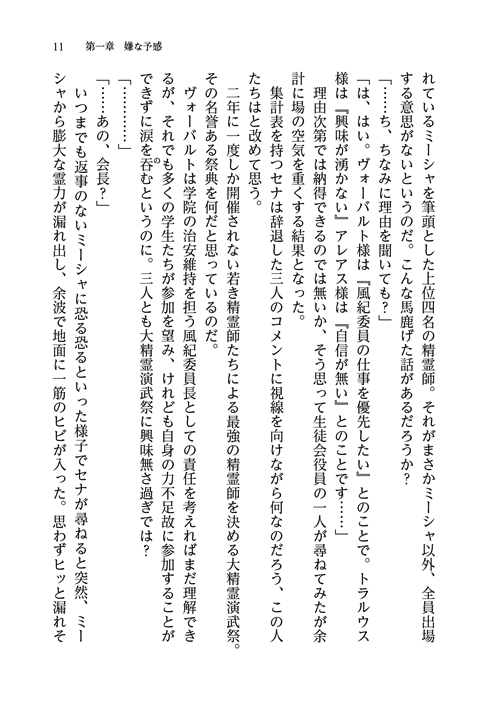 11　第一章　嫌な予感
れているミーシャを筆頭とした上位四名の精霊師。それがまさかミーシャ以外、全員出場
する意思がないというのだ。こんな馬鹿げた話があるだろうか？
「……ち、ちなみに理由を聞いても？」
「は、はい。ヴォーバルト様は『風紀委員の仕事を優先したい』とのことで。トラルウス
様は『興味が湧かない』アレアス様は『自信が無い』とのことです……」
理由次第では納得できるのでは無いか、そう思って生徒会役員の一人が尋ねてみたが余
計に場の空気を重くする結果となった。
集計表を持つセナは辞退した三人のコメントに視線を向けながら何なのだろう、この人
たちはと改めて思う。
二年に一度しか開催されない若き精霊師たちによる最強の精霊師を決める大精霊演武祭。
その名誉ある祭典を何だと思っているのだ。
ヴォーバルトは学院の治安維持を担う風紀委員長としての責任を考えればまだ理解でき
るが、それでも多くの学生たちが参加を望み、けれども自身の力不足故に参加することが
できずに涙を呑むというのに。三人とも大精霊演武祭に興味無さ過ぎでは？
の
「…………」
「……あの、会長？」
いつまでも返事のないミーシャに恐る恐るといった様子でセナが尋ねると突然、ミー
シャから膨大な霊力が漏れ出し、余波で地面に一筋のヒビが入った。思わずヒッと漏れそ